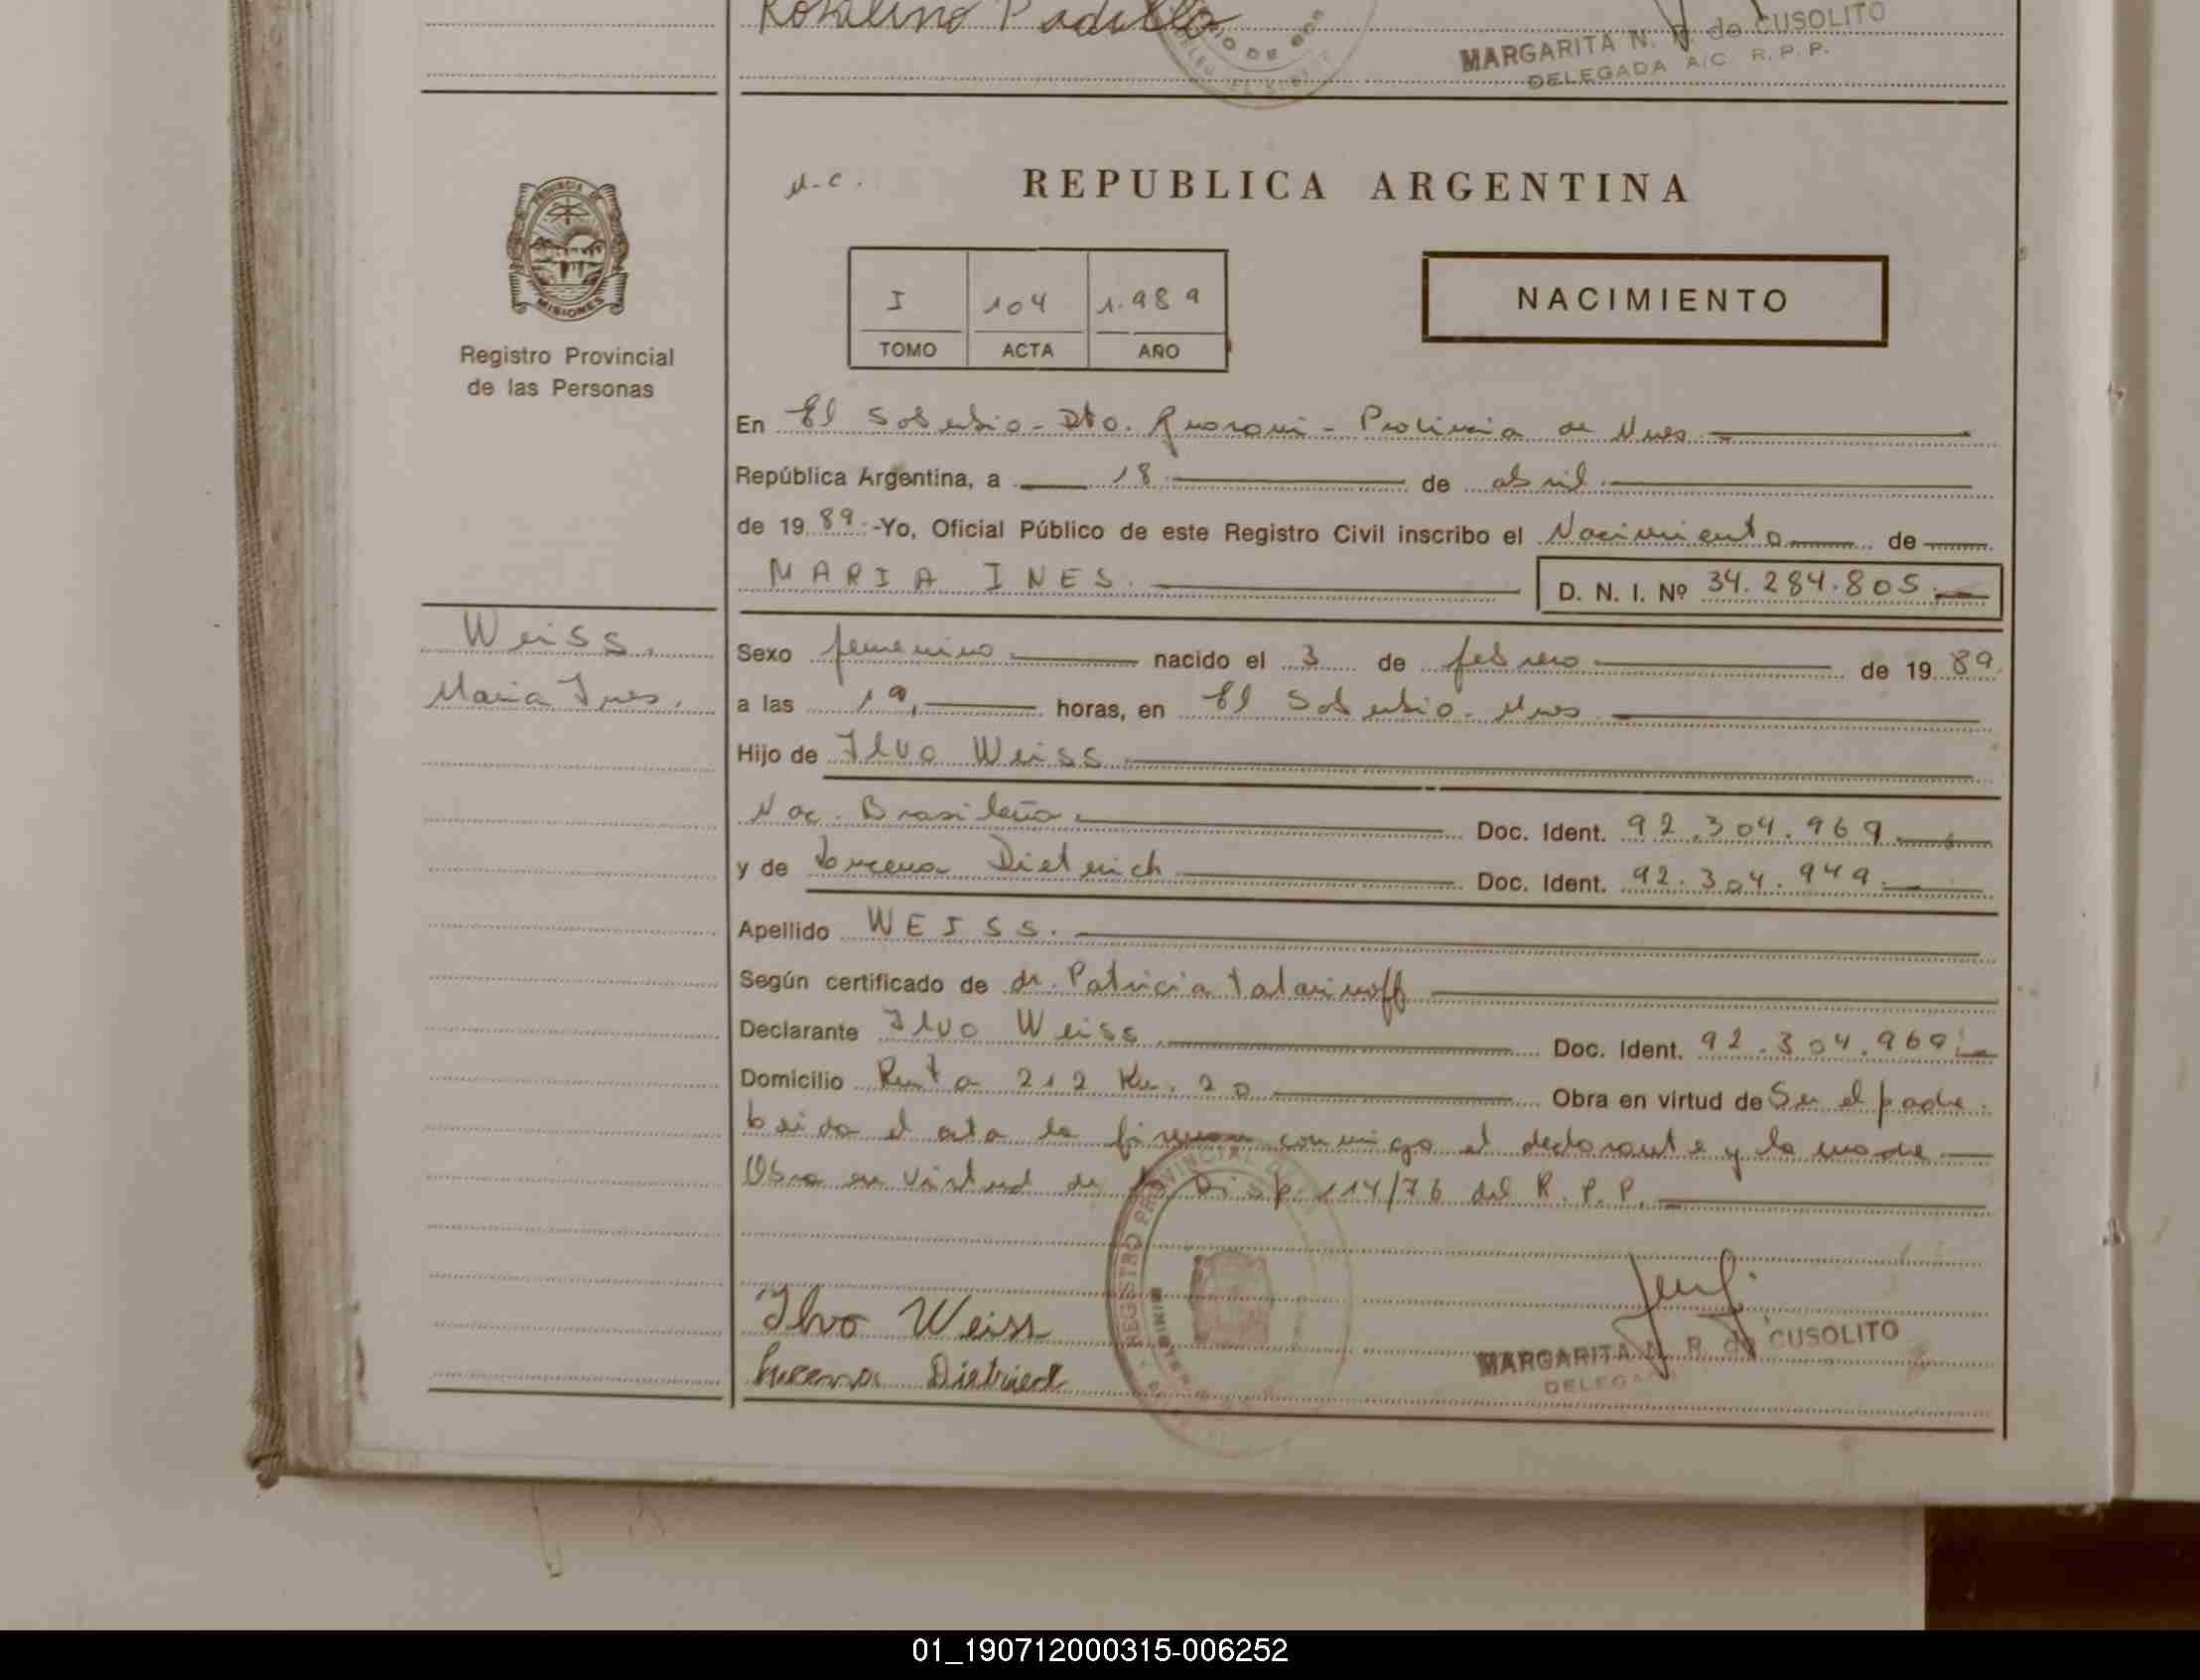 Padilla
MARGARITA N. R. de CUSOLITO
DELEGADA A/C. R. P. P.
PROVINCIA DE
MISIONES
Registro Provincial
de las Personas
M-C.
REPUBLICA ARGENTINA
I 104 1.989
TOMO ACTA AÑO
NACIMIENTO
En El Soberbio - Dto. Guarani - Provincia de Mnes
República Argentina, a 18 de abril
de 1989.-Yo, Oficial Público de este Registro Civil inscribo el Nacimiento de
MARIA INES.
D. N. I. Nº 34.284.805.
Weiss,
Maria Ines.
Sexo femenino nacido el 3 de febrero de 1989
a las 19, horas, en El Soberbio - Mnes
Hijo de Ilvo Weiss
Nac. Brasileña Doc. Ident. 92.304.969
y de Lucena Dietrich Doc. Ident. 92.304.949
Apellido WEISS.
Según certificado de dr. Patricia Tatarinoff
Declarante Ilvo Weiss Doc. Ident. 92.304.969
Domicilio Ruta 212 Km. 20 Obra en virtud de Ser el padre.
Leida el acta la firman conmigo el declarante y la madre
Obra en virtud de la Disp. 114/76 del R. P. P.
REGISTRO PROVINCIAL DE
Ilvo Weiss
Lucena Dietrich
MARGARITA N. R. de CUSOLITO
DELEGADA
01_190712000315-006252